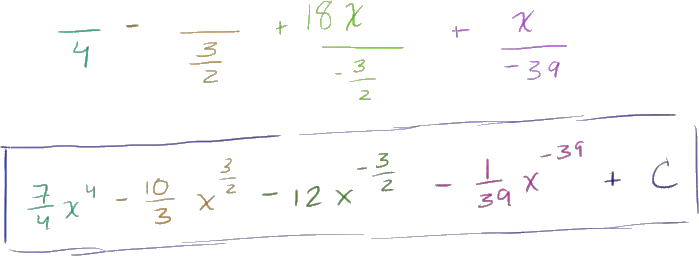 /4 - /(3/2) + 18x/(-3/2) + x/(-39)
7/4 x^4 - 10/3 x^(3/2) - 12x^(-3/2) - 1/39 x^(-39) + C